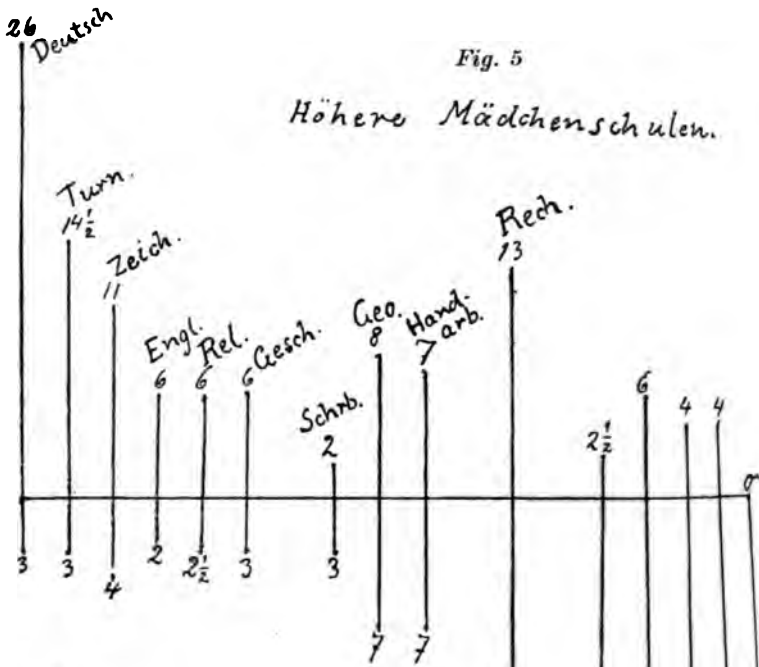 26
Deutsch
Fig. 5
Höhere Mädchenschulen.
Turn.
14½
Zeich.
11
Engl.
6
Rel.
6
Gesch.
6
Schrb.
2
Geo.
8
Hand.
arb.
7
Rech.
13
2½
6
4
4
0
3
3
4
2
2½
3
3
7
7